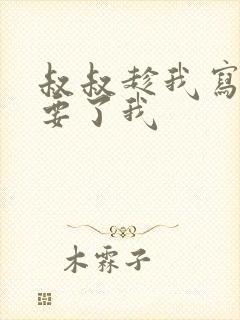 叔叔趁我寫
要了我
木霖子